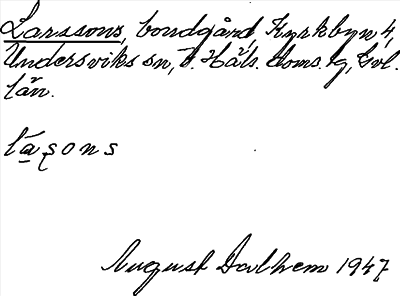 Larssons, bondgård, Kyrkbyn 4,
Undersviks sn, V. Häls. doms. g, Gvl.
län.
la̱sons
August Dalhem 1947